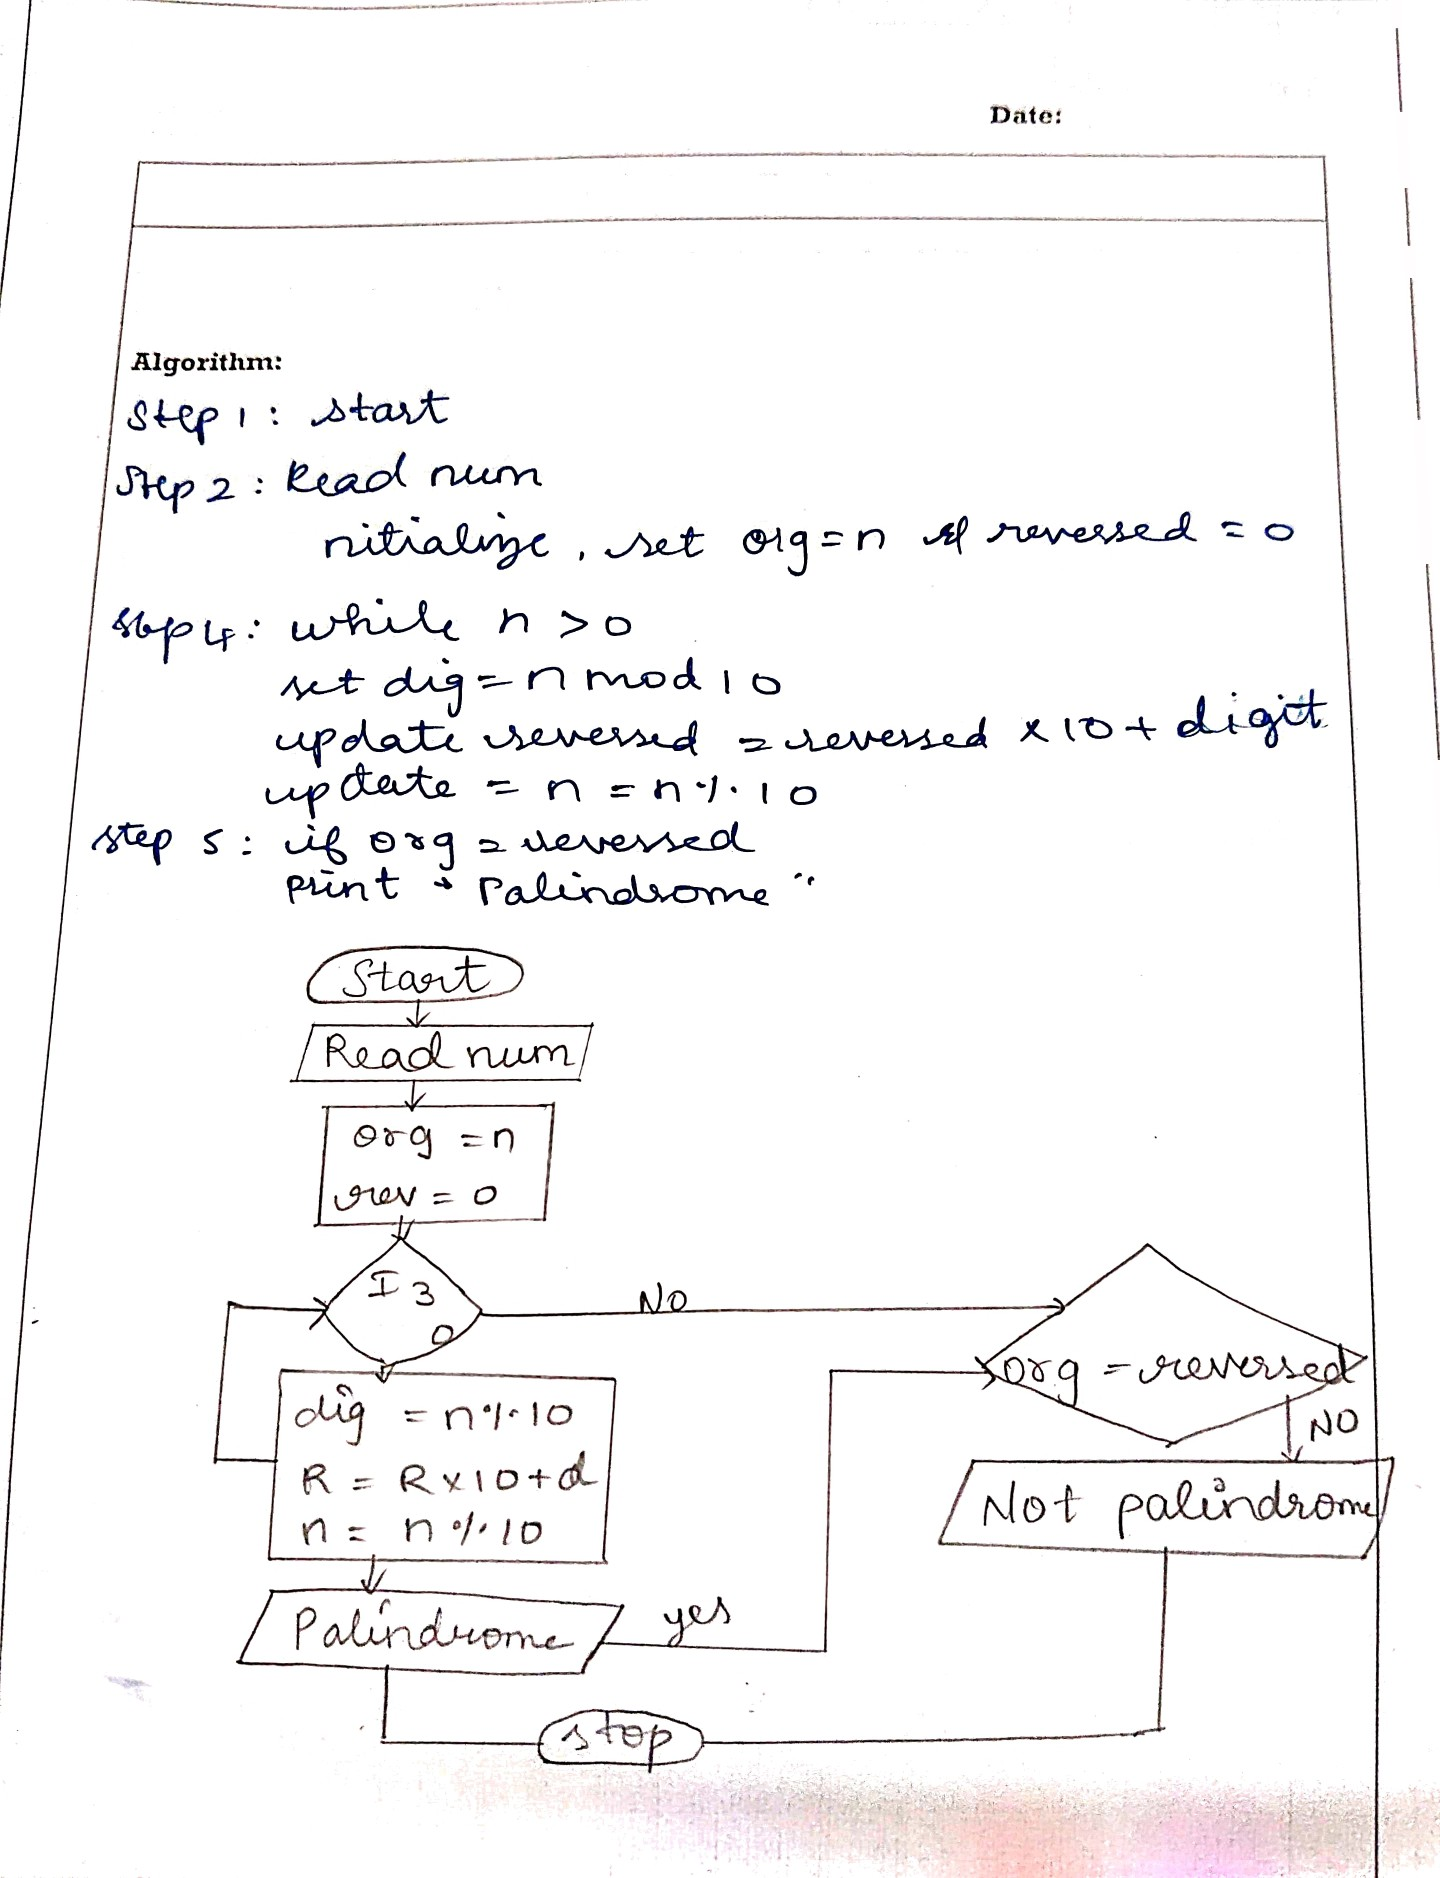 Date:
Algorithm:
Step 1: start
Step 2: Read num
nitialize, set org=n reversed = 0
step 4: while n > 0
set dig = n mod 10
update reversed = reversed x 10 + digit
update = n = n % 10
step 5: if org = reversed
print " Palindrome "
Start
Read num
org = n
rev = 0
I 3
0
NO
org = reversed
dig = n % 10
NO
R = R x 10 + d
Not palindrome
n = n % 10
Palindrome
yes
stop